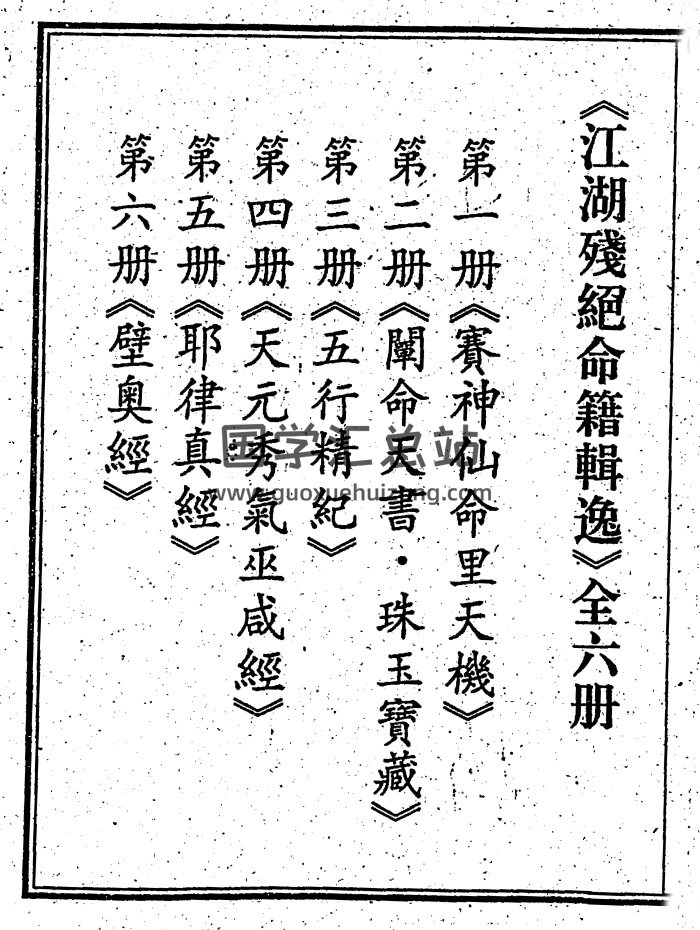 《江湖殘絕命籍輯逸》全六册
第一册《賽神仙命里天機》
第二册《闡命天書·珠玉寶藏》
第三册《五行精紀》
第四册《天元秀氣巫咸經》
第五册《耶律真經》
第六册《壁奧經》
国学汇总站
www.guoxuehuizong.com